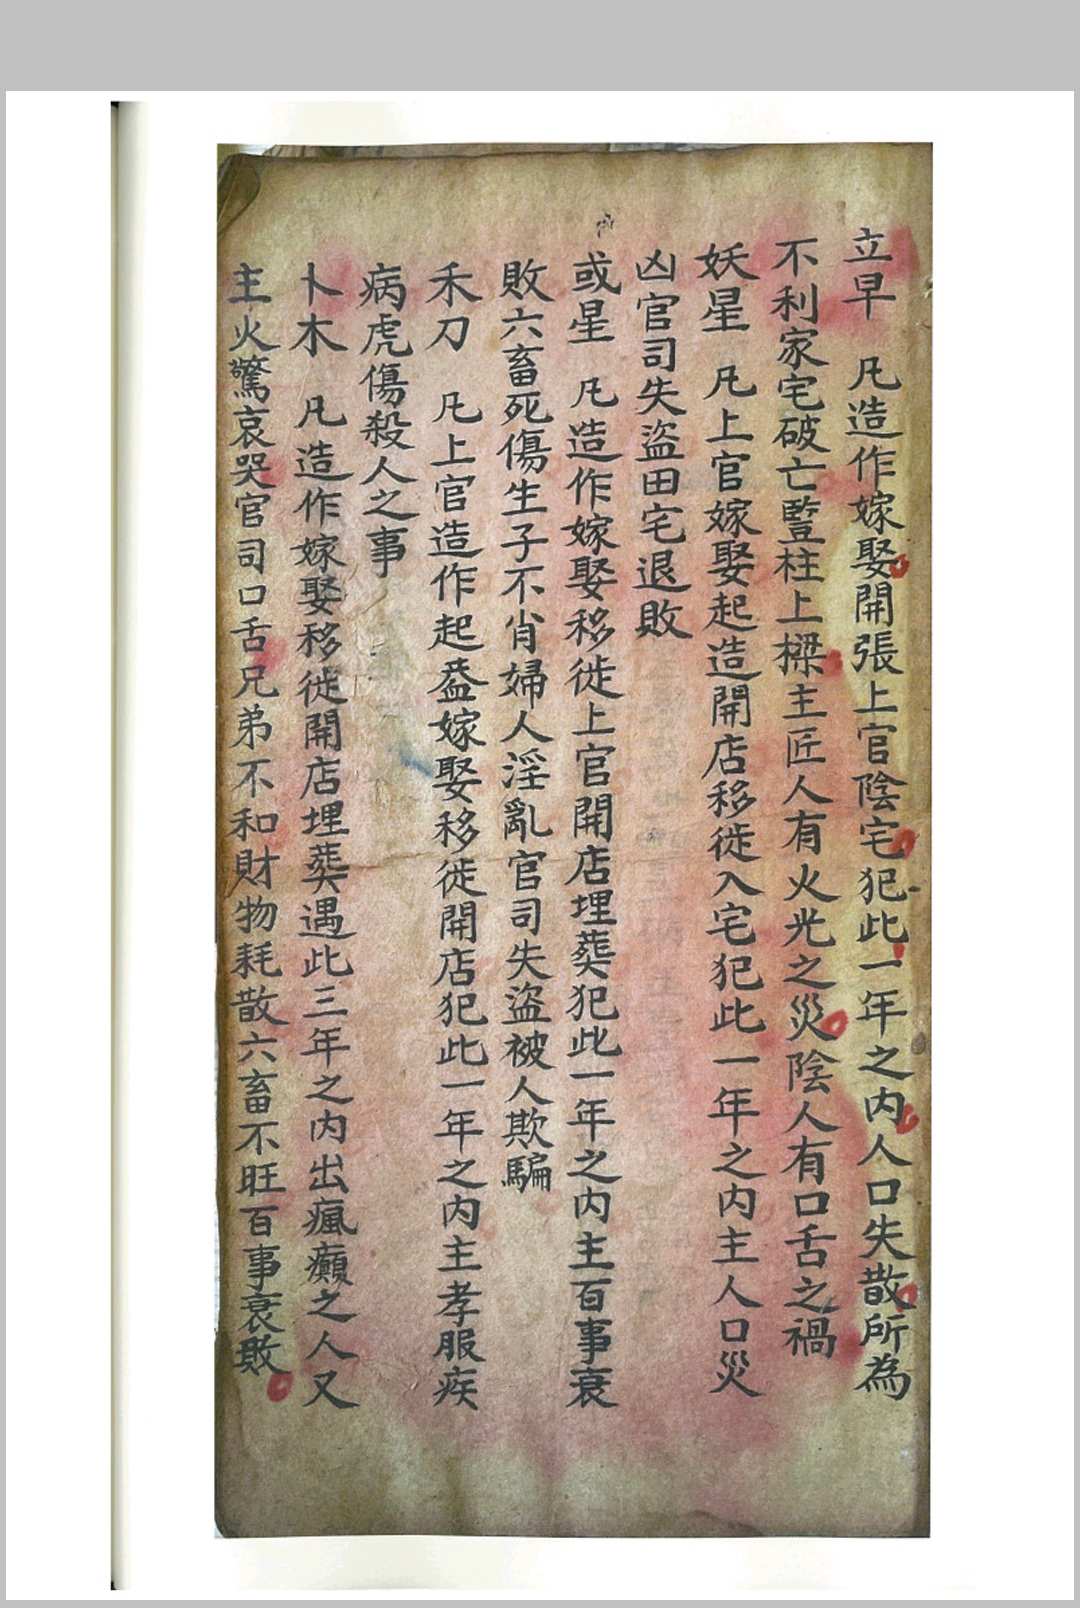 立早　凡造作嫁娶開張上官陰宅犯此一年之内人口失散所為
不利家宅破亡豎柱上樑主匠人有火光之災陰人有口舌之禍
妖星　凡上官嫁娶起造開店移徙入宅犯此一年之内主人口災
凶官司失盜田宅退敗
或星　凡造作嫁娶移徙上官開店埋葬犯此一年之内主百事衰
敗六畜死傷生子不肖婦人淫亂官司失盜被人欺騙
禾刀　凡上官造作起蓋嫁娶移徙開店犯此一年之内主孝服疾
病虎傷殺人之事
卜木　凡造作嫁娶移徙開店埋葬遇此三年之内出瘋癲之人又
主火驚哀哭官司口舌兄弟不和財物耗散六畜不旺百事衰敗